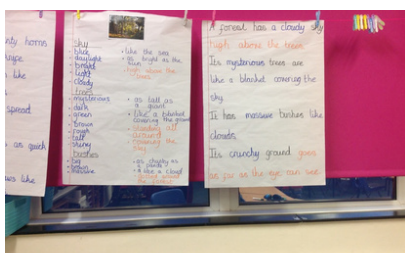 horns
like
spread
as quick
like
sky
black
daylight
bright
light
cloudy
trees
mysterious
dark
green
brown
rough
tall
shiny
bushes
big
brown
massive
• like the sea
• as bright as the sun
• high above the trees
• as tall as a giant
• like a blanket covering the ground
• standing all around
• covering the sky
• as chunky as a panda
• like a cloud
around the forest
A forest has a cloudy sky
high above the trees.
Its mysterious trees are
like a blanket covering the
sky.
It has massive bushes like
clouds.
Its crunchy ground goes
as far as the eye can see.